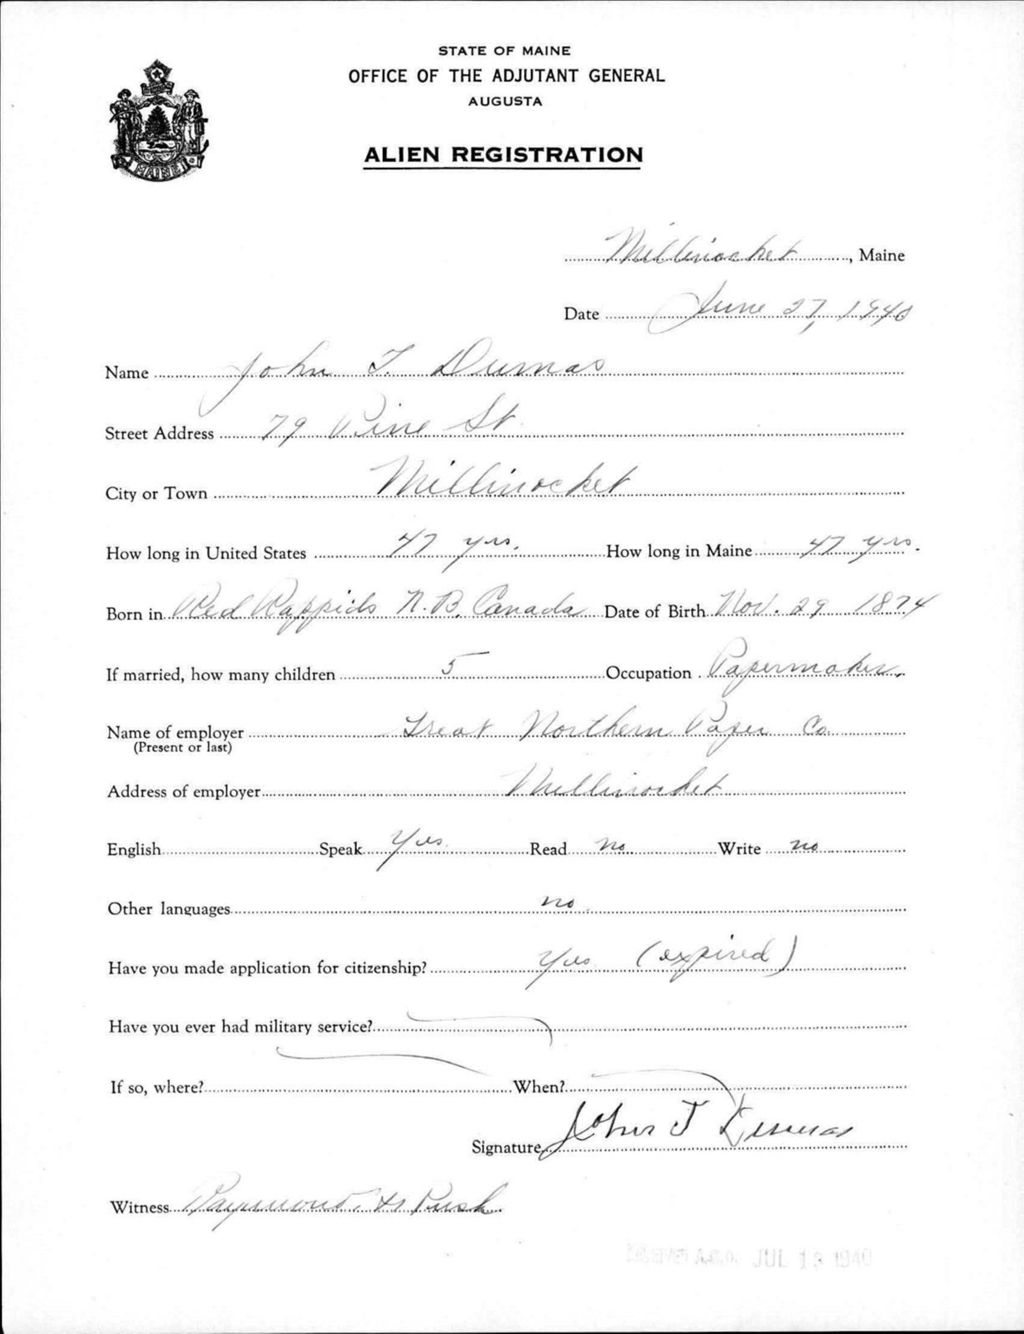 STATE OF MAINE
OFFICE OF THE ADJUTANT GENERAL
AUGUSTA
ALIEN REGISTRATION
MAINE
Millinocket, Maine
Date June 27, 1940
Name John T. Dumas
Street Address 79 Pine St
City or Town Millinocket
How long in United States 47 yrs. How long in Maine 47 yrs.
Born in Red Rappids N.B. Canada Date of Birth Nov. 29 1874
If married, how many children 5 Occupation Papermaker.
Name of employer Great Northern Paper Co.
(Present or last)
Address of employer Millinocket
English Speak Yes Read No. Write no
Other languages no.
Have you made application for citizenship? Yes (expired)
Have you ever had military service?
If so, where? When?
Signature John T Dumas
Witness Raymond H Rush
A.G.O. JUL 13 1940